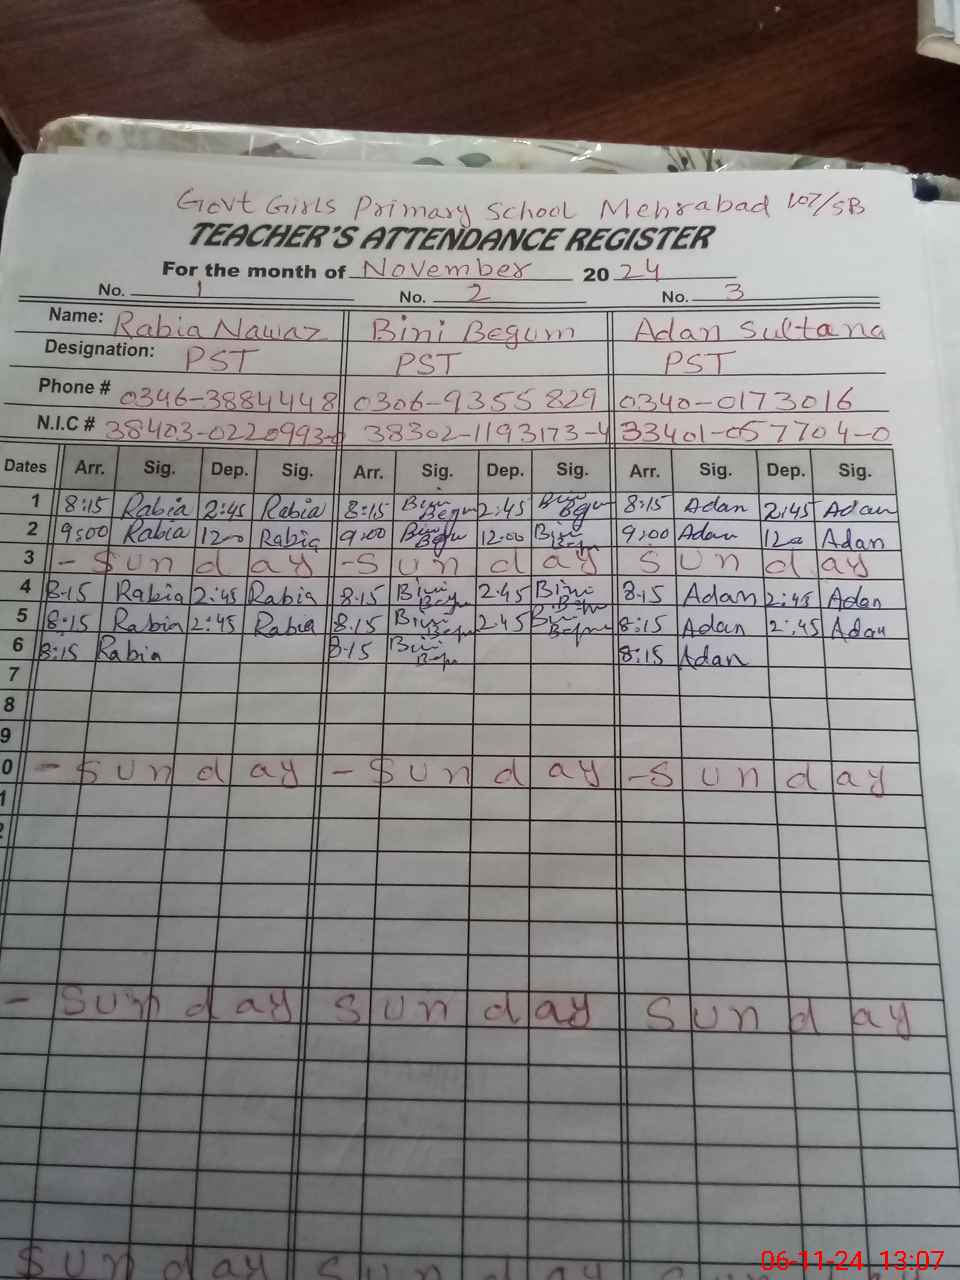 Govt Girls Primary School Mehrabad 107/SB
TEACHER'S ATTENDANCE REGISTER
For the month of November 2024
No. 1 No. 2 No. 3
Name: Rabia Nawaz Bini Begum Adan Sultana
Designation: PST PST PST
Phone # 0346-3884448 0306-9355829 0340-0173016
N.I.C # 38403-0220993- 38302-1193173-4 33401-057704-0
Dates Arr. Sig. Dep. Sig. Arr. Sig. Dep. Sig. Arr. Sig. Dep. Sig.
1 8:15 Rabia 2:45 Rabia 8:15 Bini Begum 2:45 Bini Begum 8:15 Adan 2:45 Adan
2 9:00 Rabia 12:00 Rabia 9:00 Bini Begum 12:00 Bini Begum 9:00 Adan 12:00 Adan
3 - Sunday - Sunday Sunday
4 8:15 Rabia 2:45 Rabia 8:15 Bini Begum 2:45 Bini Begum 8:15 Adan 2:45 Adan
5 8:15 Rabia 2:45 Rabia 8:15 Bini Begum 2:45 Bini Begum 8:15 Adan 2:45 Adan
6 8:15 Rabia 8:15 Bini Begum 8:15 Adan
7
8
9
0 - Sunday - Sunday - Sunday
1
2
- Sunday Sunday Sunday
Sunday Sunday
06-11-24 13:07